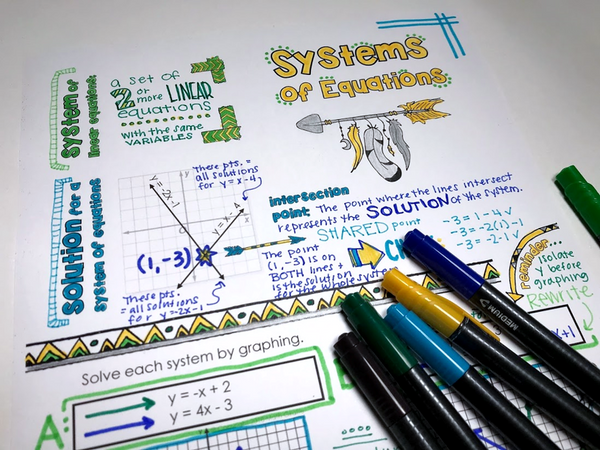 Systems
of Equations
System of
linear equations
a set of
2 or more LINEAR
equations
with the same
VARIABLES
Solution for a
System of equations
These pts. =
all solutions
for y = x-4
y = -2x-1
y = x-4
(1,-3)
These pts.
= all solutions
for y=-2x-1
intersection
point: The point where the lines intersect
represents the SOLUTION of the system.
SHARED point
The point
(1,-3) is on
BOTH lines +
is the solution
for the whole system
-3 = 1-4 ✓
-3 = -2(1)-1
-3 = -2-1 ✓
reminder...
isolate
y before
graphing
REWRITE
Solve each system by graphing.
A:
y = -x + 2
y = 4x - 3
MEDIUM